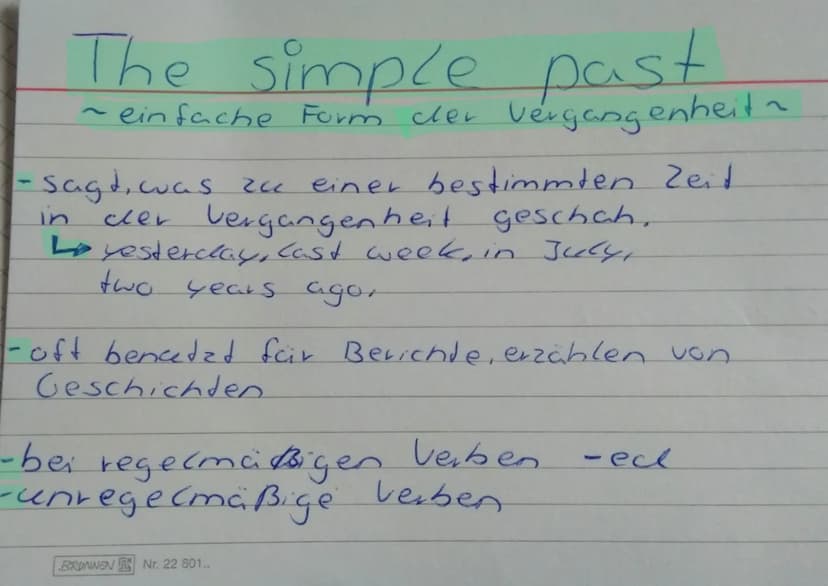 The simple past
~ einfache Form der Vergangenheit ~
- sagt, was zu einer bestimmten Zeit
in der Vergangenheit geschah.
↳ yesterday, last week, in July,
two years ago,
- oft benutzt für Berichte, erzählen von
Geschichten
- bei regelmäßigen Verben -ed
- unregelmäßige Verben
BRUNNEN Nr. 22 801..